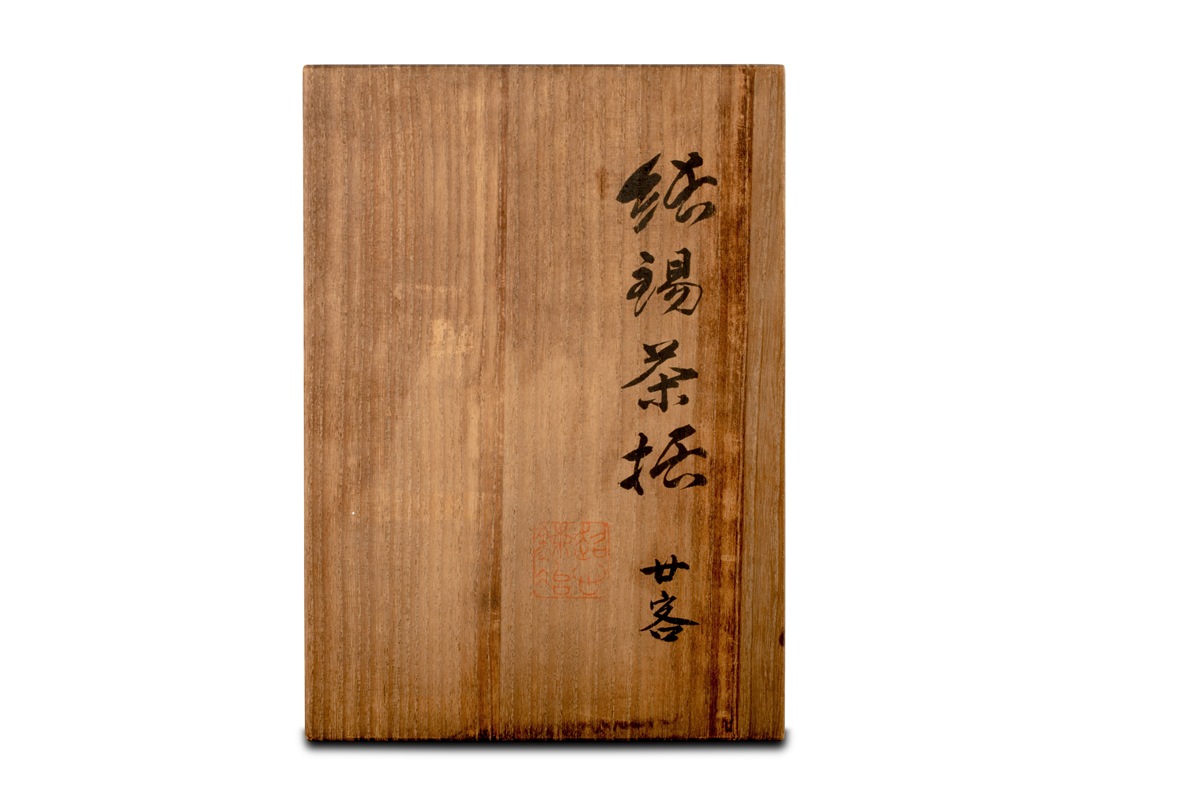 純錫茶托
廿客